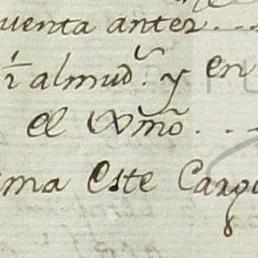 uenta anter...
1 almud. y en
el Xmo...
ima este Cargo